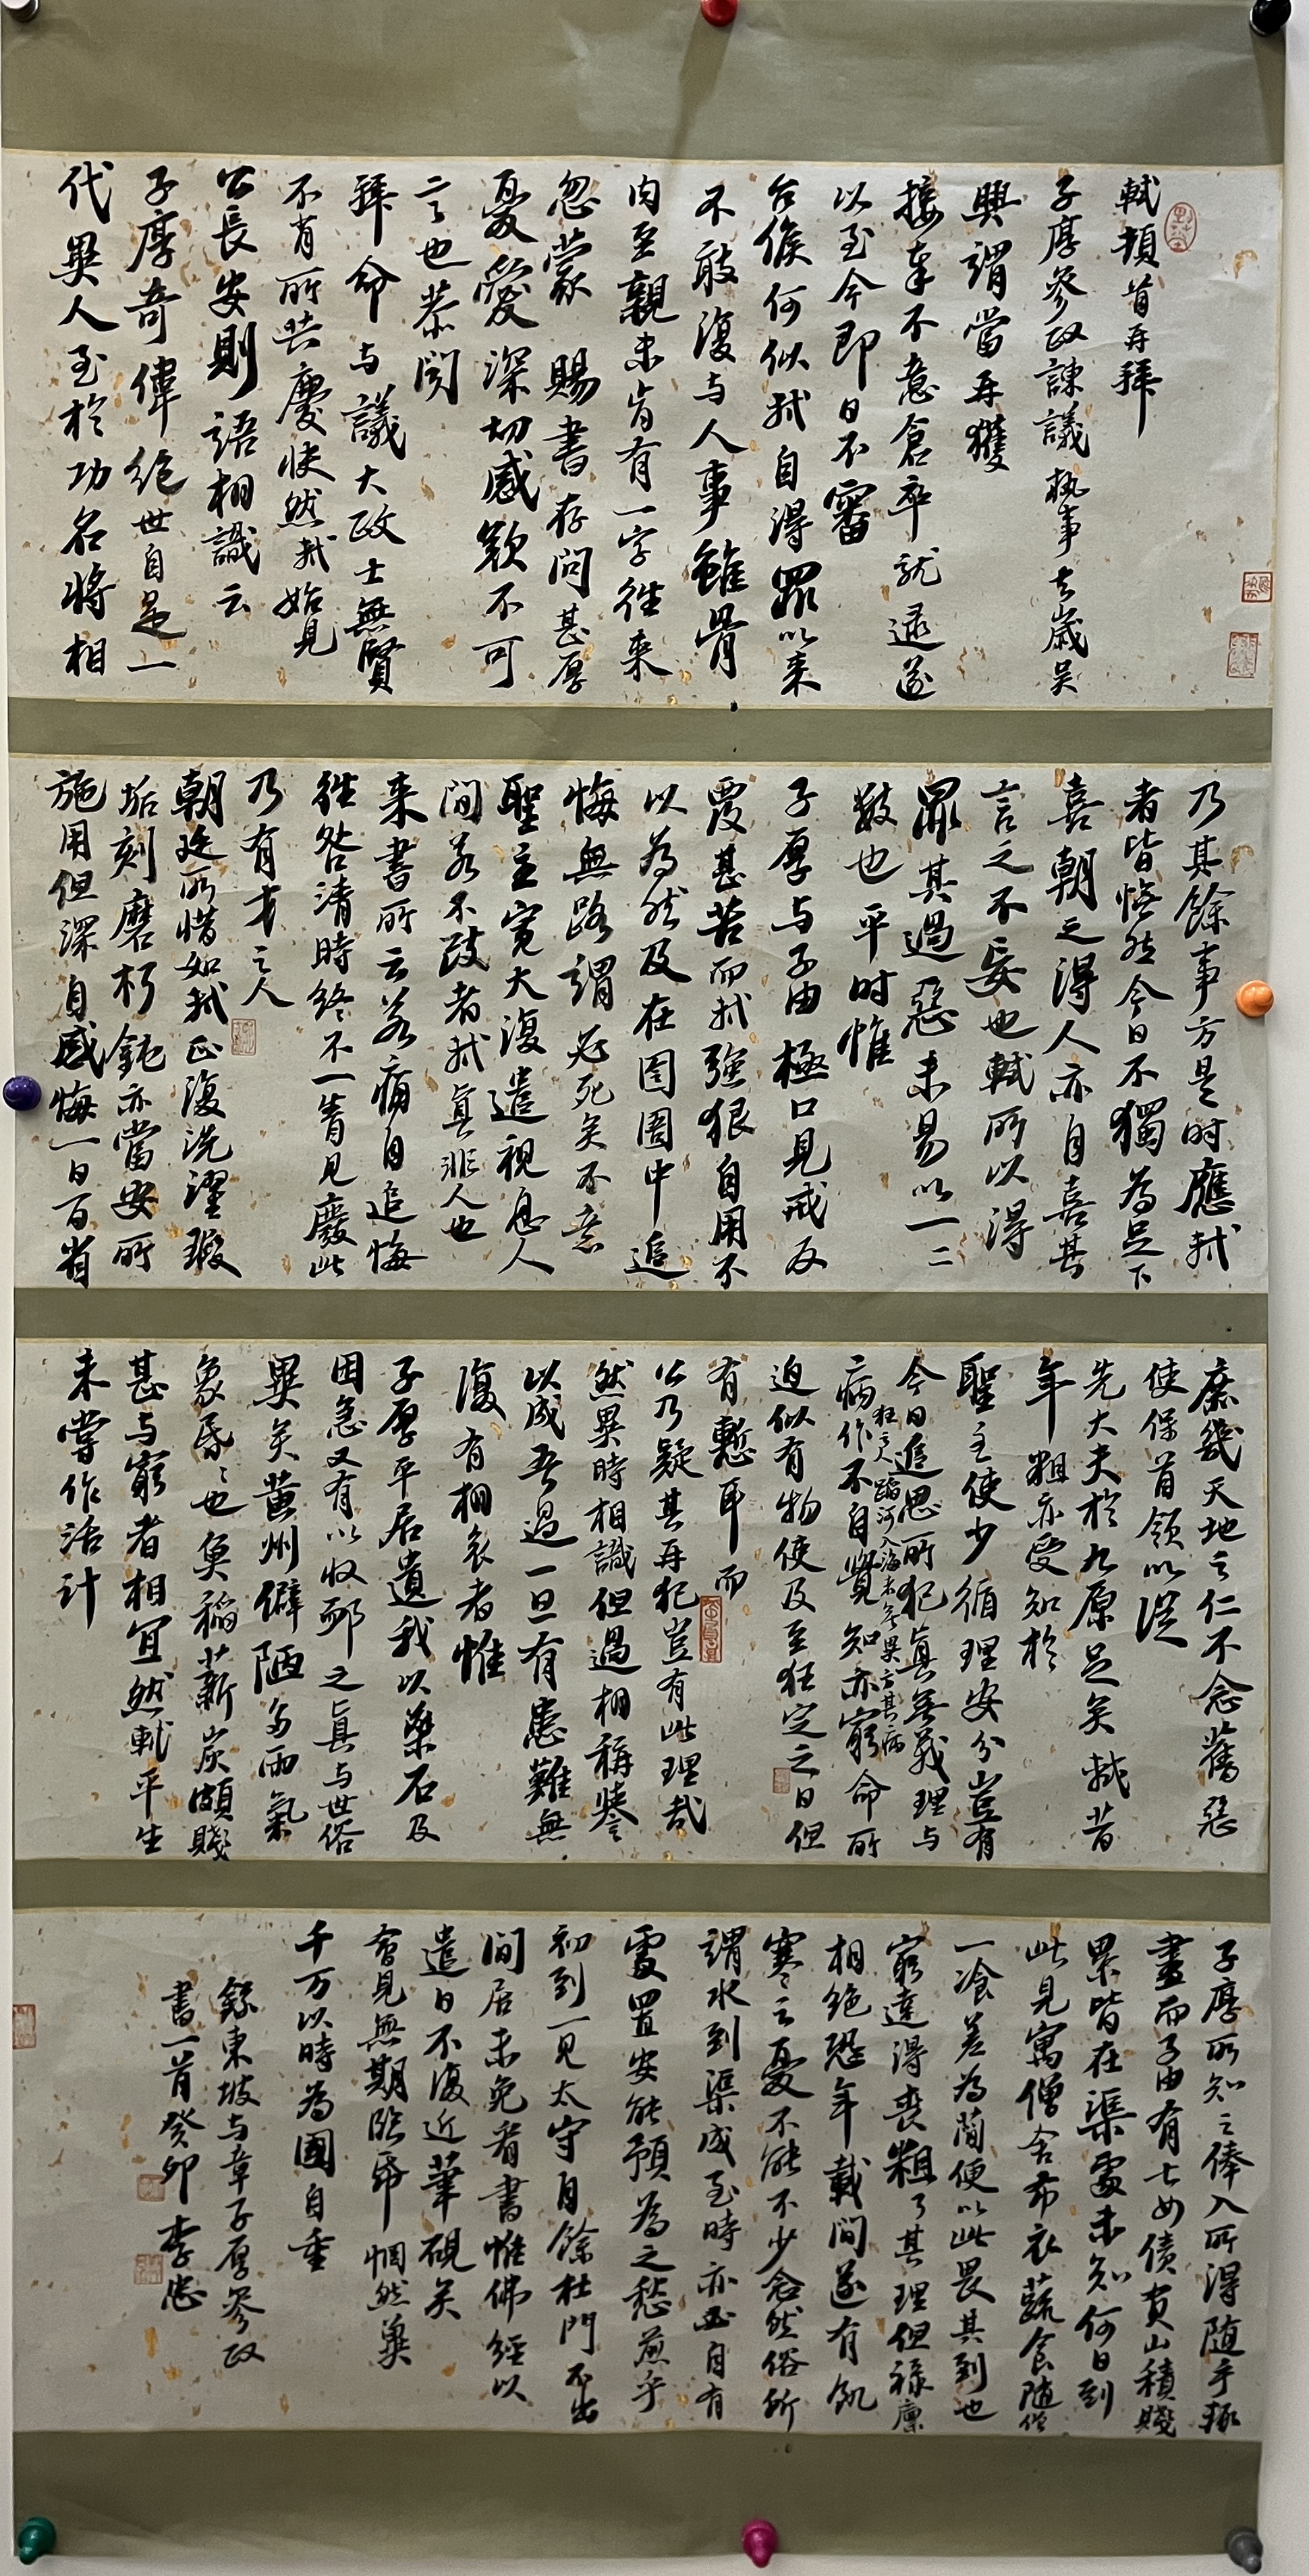 軾頓首再拜
子厚參政諫議執事去歲吳
興謂當再獲
接奉不意倉卒就逮遂
以至今即日不審
台候何似軾自得罪以来
不敢復与人事雖骨
肉至親未肯有一字往来
忽蒙賜書存问甚厚
憂愛深切感歎不可
言也恭闻
拜命与議大政士無賢
不肖所共慶快然軾始見
公長安則語相識云
子厚奇偉絶世自是一
代異人至於功名将相
乃其餘事方是时應軾
者皆憮然今日不獨為足下
喜朝之得人亦自喜其
言之不妄也軾所以得
罪其過惡未易以一二
數也平时惟
子厚与子由極口見戒反
覆甚苦而軾強狠自用不
以為然及在囹圄中追
悔無路謂必死矣不意
聖主寛大復遣視息人
间若不改者軾真非人也
来書所云若痛自追悔
往咎清時終不一眚見廢此
乃有才之人
朝廷所惜如軾正復洗濯瑕
垢刻磨朽鈍亦當安所
施用但深自感悔一日百省
庶幾天地之仁不念舊惡
使保首領以從
先大夫於九原足矣軾昔
年粗亦受知於
聖主使少循理安分豈有
今日追思所犯真無義理与
狂之人蹈河入海者無異方其病
病作不自覺知亦窮命所
迫似有物使及至狂定之日但
有慙耳而
公乃疑其再犯豈有此理哉
然異時相識但過相稱譽
以成吾過一旦有患難無
復有相哀者惟
子厚平居遺我以藥石及
困急又有以收卹之真与世俗
異矣黄州僻陋多雨氣
象昏昏也魚稻薪炭頗賤
甚与窮者相宜然軾平生
未嘗作活計
子厚所知之俸入所得随手輒
盡而子由有七女債負山積賤
累皆在渠處未知何日到
此見寓僧舍布衣蔬食随僧
一飡差為简便以此畏其到也
窮達得喪粗了其理但禄廪
相绝恐年載间遂有飢
寒之憂不能不少念然俗所
謂水到渠成至時亦必自有
處置安能預為之愁煎乎
初到一見太守自餘杜門不出
间居未免看書惟佛經以
遣日不復近筆硯矣
會見無期臨帋惘然冀
千万以時為國自重
錄東坡与章子厚參政
書一首癸卯李忠